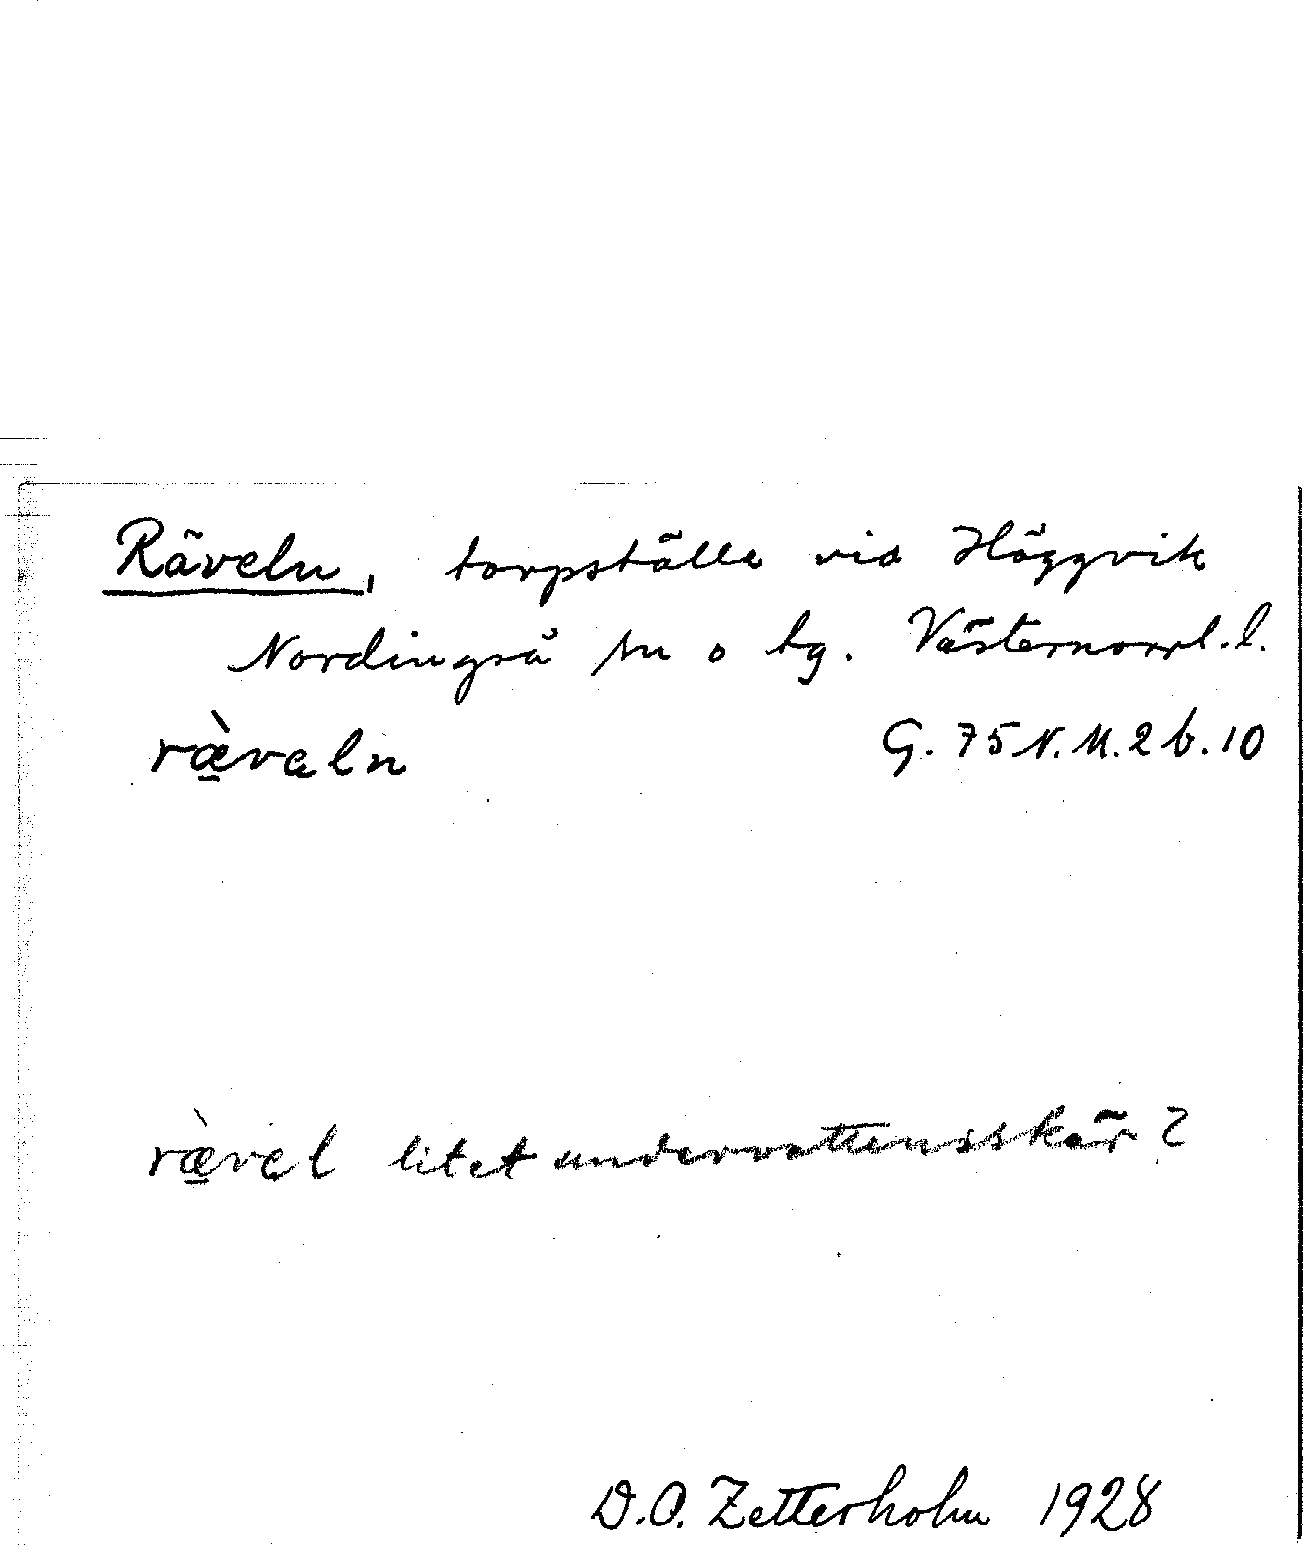 Räveln, torpställe vid Häggvik
Nordingrå sn o tg. Västernorrl. l.
ræ̀veln G. 75 N.M. 2 b. 10
ræ̀vel litet undervattensskär?
D.O. Zetterholm 1928